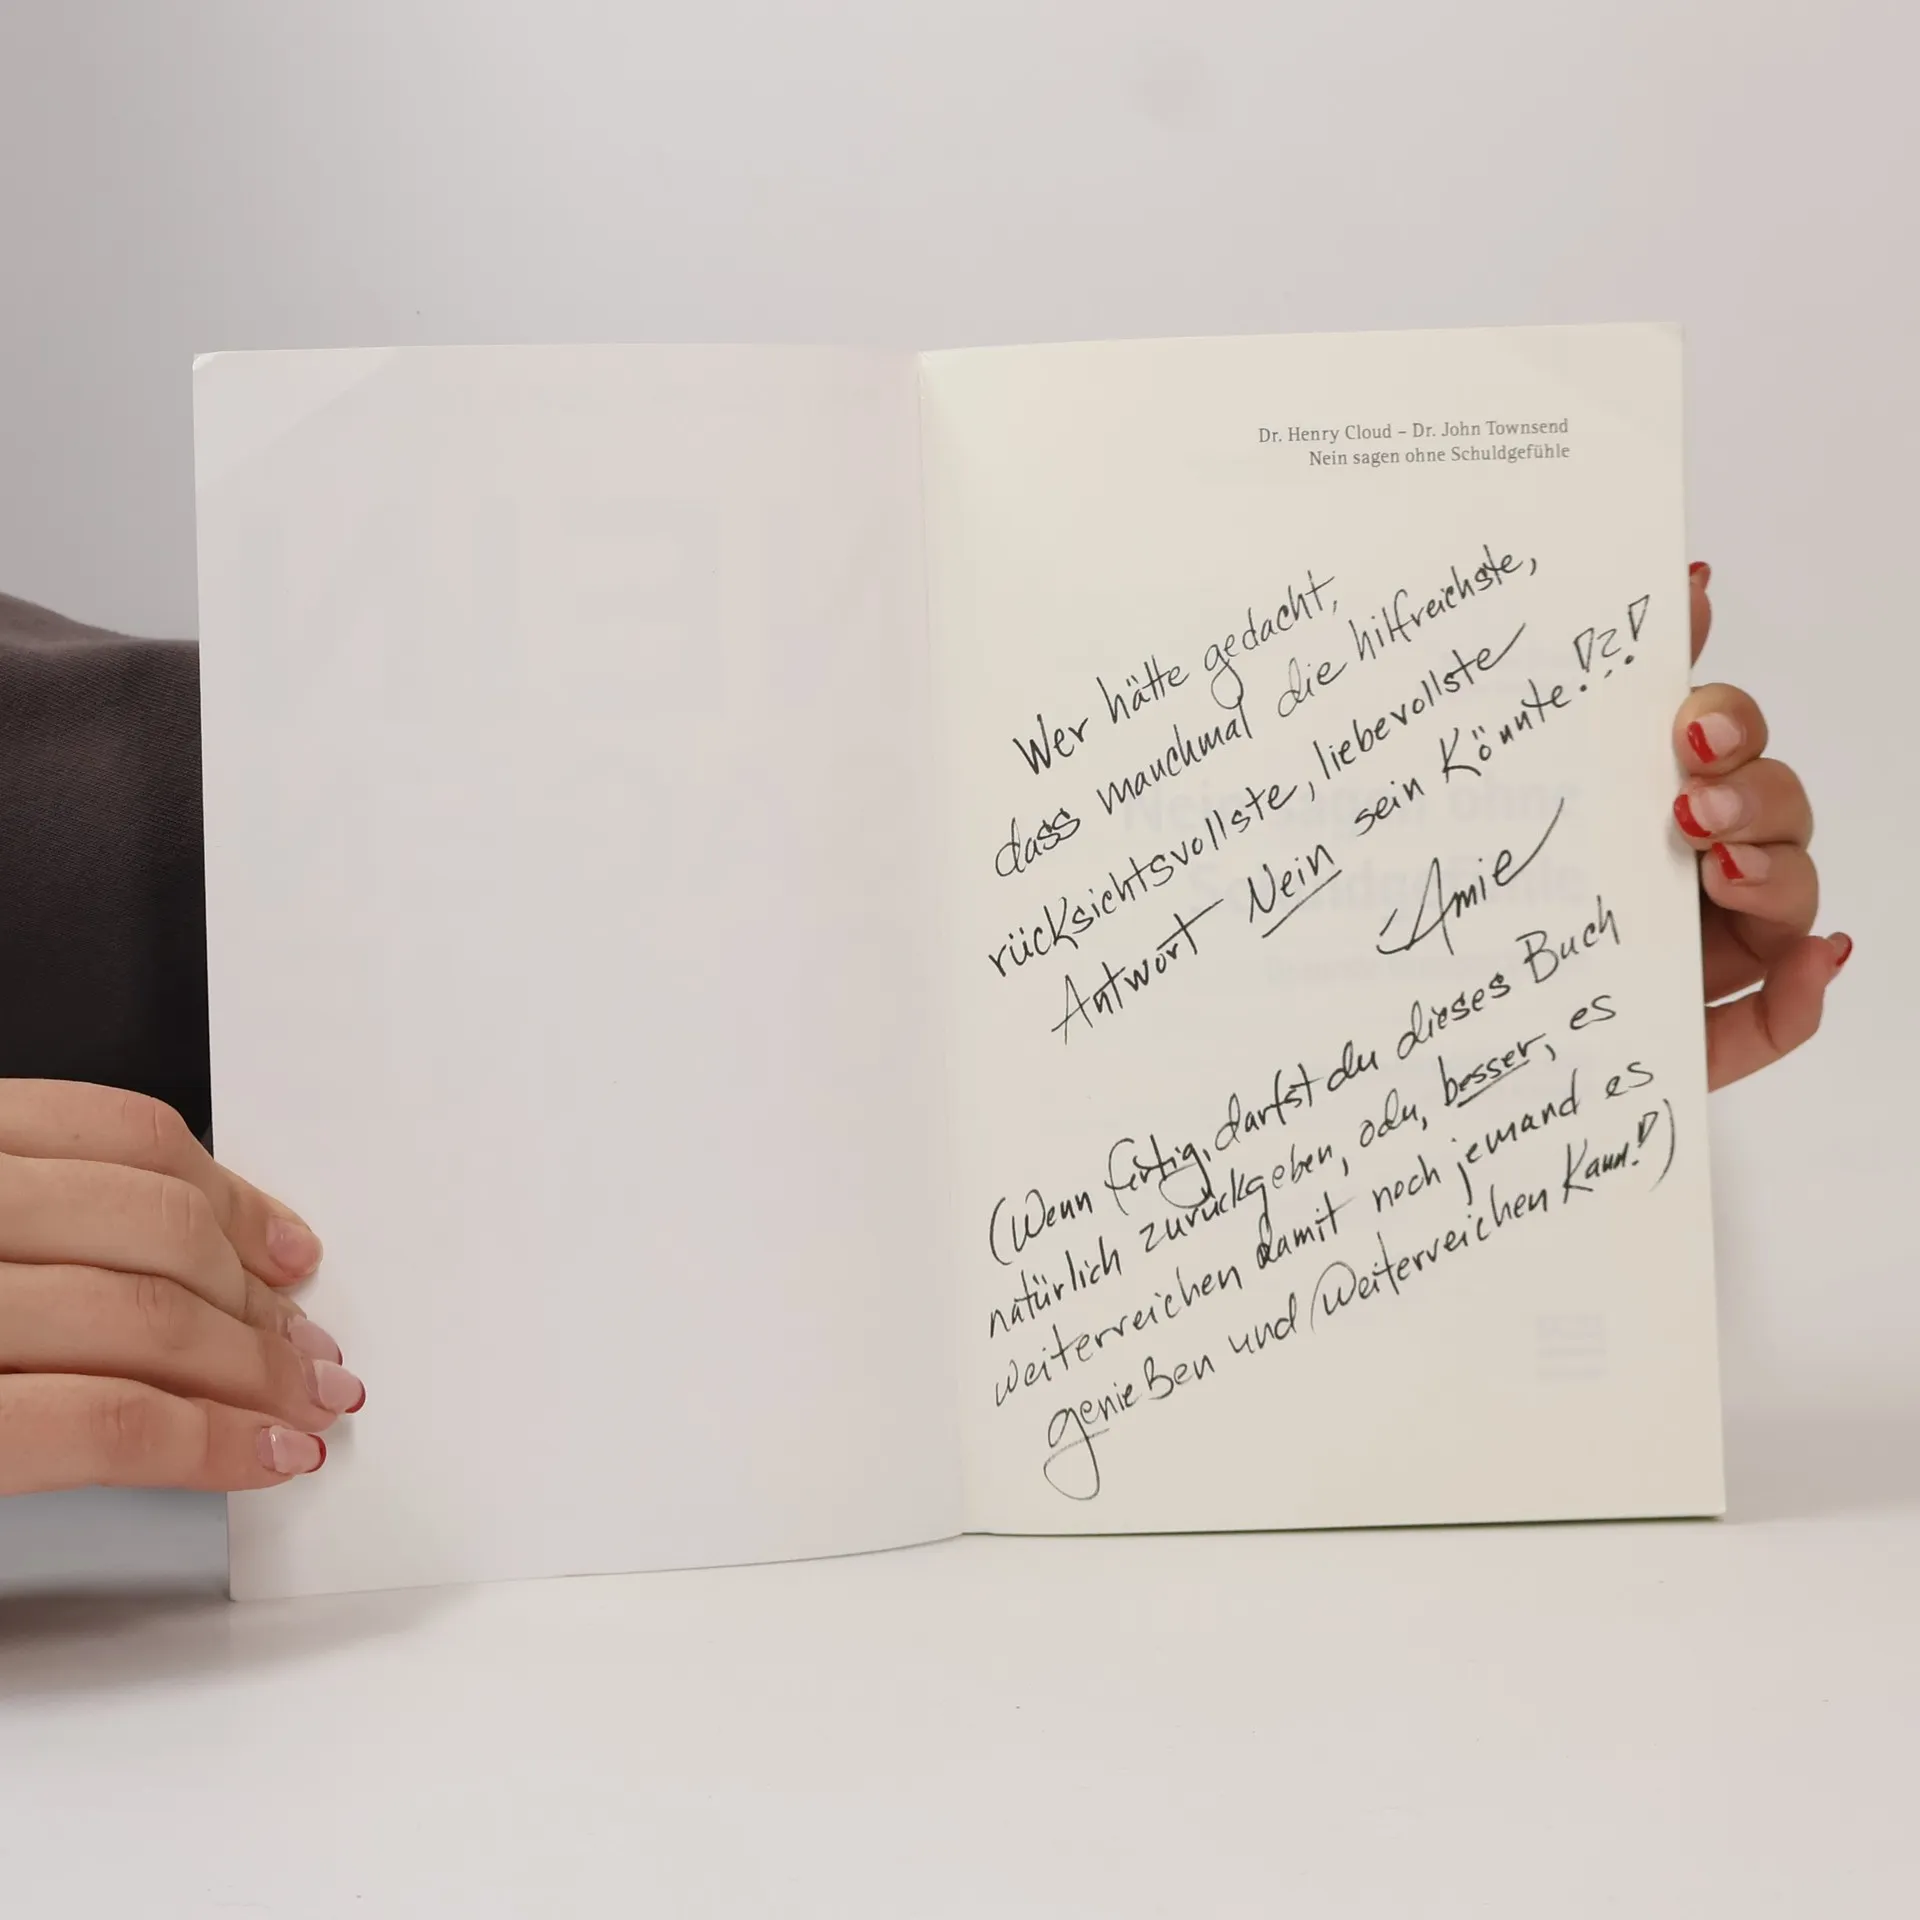 Dr. Henry Cloud – Dr. John Townsend
Nein sagen ohne Schuldgefühle
Wer hätte gedacht,
dass manchmal die hilfreichste,
rücksichtsvollste, liebevollste
Antwort Nein sein Könnte!?!
-Amie
(Wenn fertig, darfst du dieses Buch
natürlich zurückgeben, oder, besser, es
weiterreichen damit noch jemand es
genießen und weiterreichen Kann!)
Nein sagen ohne
Schuldgefühle